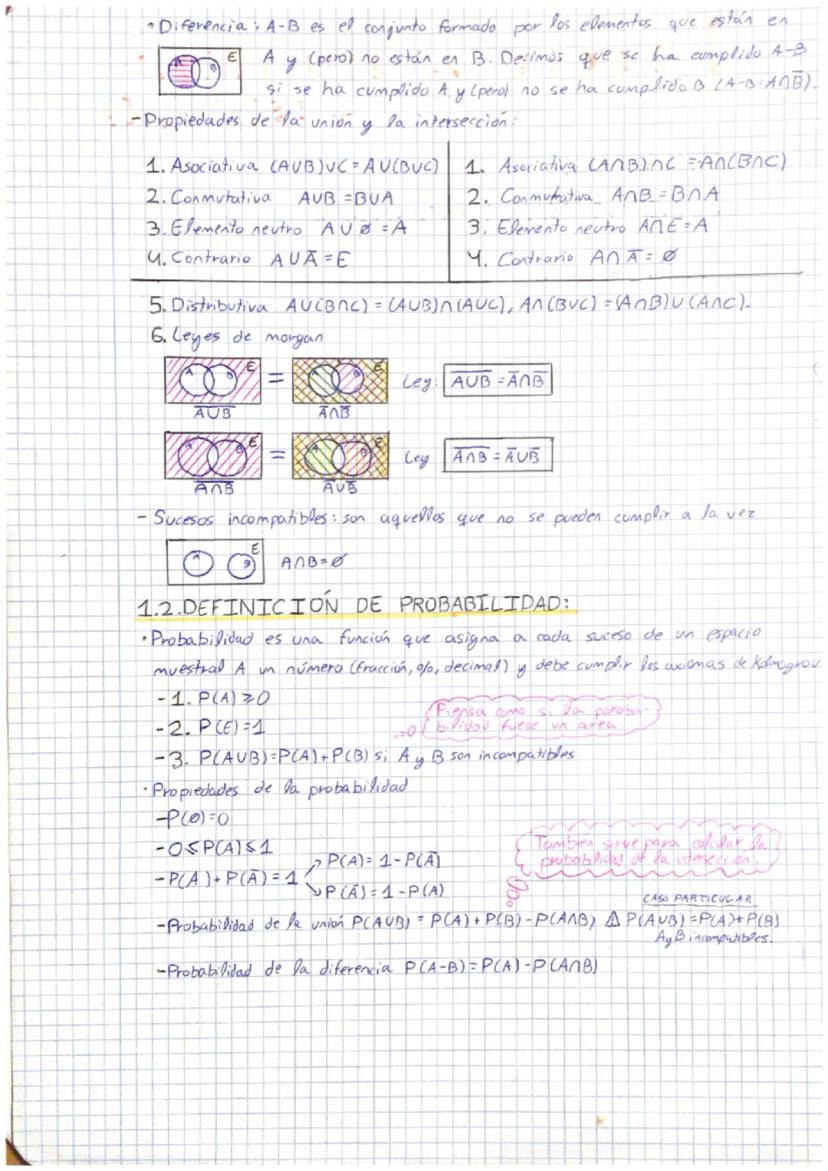 • Diferencia: A-B es el conjunto formado por los elementos que están en
A y (pero) no están en B. Decimos que se ha cumplido A-B
si se ha cumplido A y (pero) no se ha cumplido B (A-B=A∩B̅).
A B E
- Propiedades de la unión y la intersección:
1. Asociativa (A∪B)∪C=A∪(B∪C)
2. Conmutativa A∪B=B∪A
3. Elemento neutro A∪Ø=A
4. Contrario A∪A̅=E
1. Asociativa (A∩B)∩C=A∩(B∩C)
2. Conmutativa A∩B=B∩A
3. Elemento neutro A∩E=A
4. Contrario A∩A̅=Ø
5. Distributiva A∪(B∩C)=(A∪B)∩(A∪C), A∩(B∪C)=(A∩B)∪(A∩C).
6. Leyes de morgan
A B E = A B E Ley: A̅∪̅B̅=A̅∩B̅
A̅∪̅B̅ A̅∩B̅
A B E = A B E Ley A̅∩̅B̅=A̅∪B̅
A̅∩̅B̅ A̅∪B̅
- Sucesos incompatibles: son aquellos que no se pueden cumplir a la vez
A B E A∩B=Ø
1.2.DEFINICIÓN DE PROBABILIDAD:
• Probabilidad es una función que asigna a cada suceso de un espacio
muestral A un número (fracción, %, decimal) y debe cumplir los axiomas de Kolmogrov
-1. P(A)≥0
-2. P(E)=1
Piensa como si la poroba-
bilidad fuese un área
-3. P(A∪B)=P(A)+P(B) si A y B son incompatibles
• Propiedades de la probabilidad
-P(Ø)=0
-0≤P(A)≤1
-P(A)+P(A̅)=1
P(A)=1-P(A̅)
P(A̅)=1-P(A)
También sirve para calcular la
probabilidad de la intersección.
CASO PARTICULAR
-Probabilidad de la unión P(A∪B)=P(A)+P(B)-P(A∩B) ⚠ P(A∪B)=P(A)+P(B)
A y B incompatibles.
-Probabilidad de la diferencia P(A-B)=P(A)-P(A∩B)